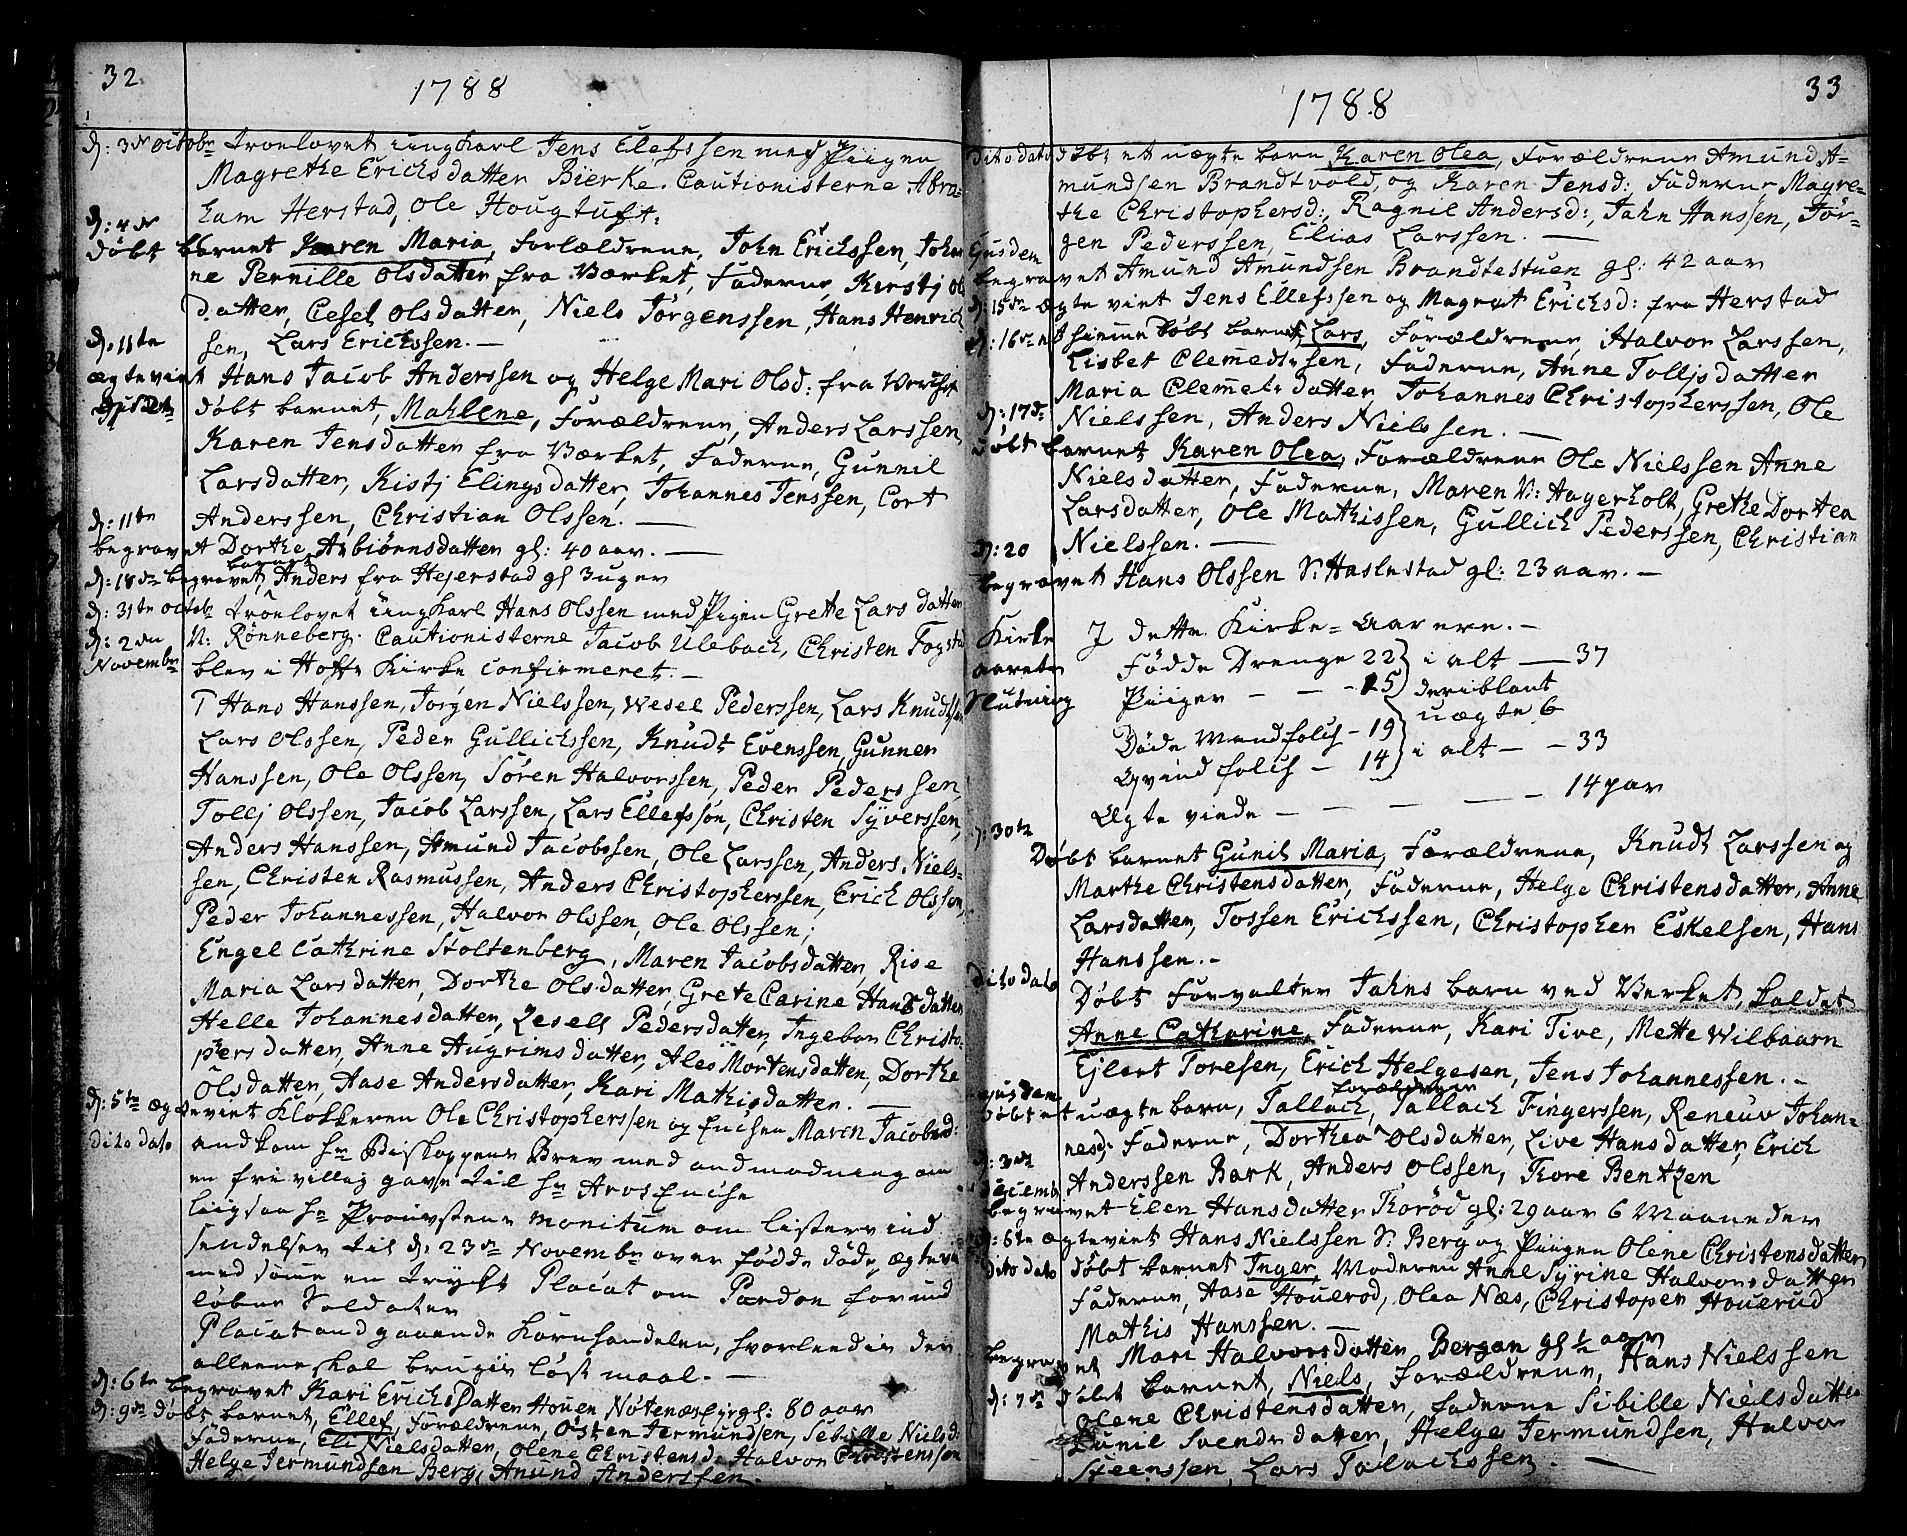 32
1788
d: 3de octobr troelovet ungkarl Jens Elefssen med Piigen
Magrethe Erichsdatter Bierke. Cautionisterne Abra-
ham Herstad, Ole Hougtuft.
d: 4de
døbt barnet Karen Maria, forældrene, John Erichssen, Johan
ne Pernille Olsdatter fra Værket, Fadderne, Kirstj Ols
datter, Cesel Olsdatter, Niels Jörgenssen, Hans Henrich
sen, Lars Erichssen. —
d. 11te
ægteviet Hans Jacob Anderssen og Helge Mari Olsd: fra Verchet
døbt barnet, Mahlene, Forældrene, Anders Larssen,
Karen Jensdatter fra Værket, Fadderne, Gunnil
Larsdatter, Kistj Elingsdatter, Johannes Jenssen, Cort
Anderssen, Christian Olssen. —
d: 11te
begravet Dorthe Asbiörnsdatter gl: 40 aar. —
d: 18de begravet barnet Anders fra Hejerstad gl 3 uger
d: 31te octobr troelovet ungkarl Hans Olssen med Pigen Grete Larsdatter
N: Rönneberg. Cautionisterne Jacob Ulebach, Christen Fogstu
d: 2den
Novembr blev i Hoffs Kirke confirmeret. —
Hans Hanssen, Jorgen Nielssen, Wesel Pederssen, Lars Knudssen
Lars Olssen, Peder Gullichssen, Knudt Evenssen, Gunner
Hanssen, Ole Olssen, Sören Halvorssen, Peder Pederssen,
Tollj Olssen, Jacob Larssen, Lars Ellefssön, Christen Syverssen,
Anders Hanssen, Amund Jacobssen, Ole Larssen, Anders Niels-
sen, Christen Rasmussen, Anders Christopherssen, Erich Olssön,
Peder Johannessen, Halvor Olssen, Ole Olssen;
Engel Cathrine Stoltenberg, Maren Jacobsdatter, Rise
Maria Larsdatter, Dorthe Olsdatter, Grete Carine Hansdatter
Helle Johannesdatter, Zesell Pedersdatter, Ingebor Christo-
phersdatter, Anne Augrimsdatter, Aleö Mortensdatter, Dorthe
Olsdatter, Aase Andersdatter, Kari Mathisdatter. —
d: 5te ægteviet Klokkeren Ole Christopherssen og Maren Jacobsd:
dito dato andkom hr Biskoppens Brev med andmodning om
en frivillig gave til hr
liigsaa hr Provstens Monitum om listers ind
sendelser til d. 23de Novembr over fødde døde, ægtevi
med samme en trykt Placat om Pardon for und
løbne Soldater
Placat andgaaende Kornhandelen, hvorleedis den
alleene skal brugis løst maal. —
d: 6te begravet Kari Erichsdatter Houen gl: 80 aar
d: 9de døbt barnet, Ellef, Forældrene, Östen Jermundsen, Sebille Nielsd:
Fadderne, Eli Nielsdatter, Olene Christensd: Halvor Christenssön
Helge Jermundsen Berg, Anund Anderssen.
33
1788
Dito dato døbt et uægte barn Karen Olea, Forældrene Amund A-
mundsen Brandtvold, og Karen Jensd: Fadderne Magre-
the Christophersd:, Ragnil Andersd:, Jahn Hanssen, Jör-
gen Pederssen, Elias Larssen. —
Ejusdem
begravet Amund Amundsen Brandtestuen gl: 42 aar
d: 15de ægteviet Jens Ellefssen og Magret Erichsd: fra Herstad
d: 16de hiemme døbt barnet Lars, Forældrene, Halvor Larssen,
Lisbet Clemedtssen, Fadderne, Anne Tolljsdatter
Maria Clemetsdatter, Johannes Christopherssen, Ole
Nielssen, Anders Nielssen. —
d: 17de
døbt barnet Karen Olea, Forældrene Ole Nielssen Anne
Nielsdatter, Fadderne, Maren N: Aagerholt, Grethe Dortea
Larsdatter, Ole Mathissen, Gullich Pederssen, Christian
Nielssen. —
d: 20
begravet Hans Olssen S: Haslestad gl: 23 aar. —
Kirke aarets Slutning
I dette Kirke-Aar ere. —
Fødde Drenge 22 } i alt — 37
Piiger — — 15 } deriblant
uægte 6
Døde Mandfolch - 19
Qvindfolch - 14 } i alt — 33
Ægteviede — — — — 14 par
d: 30te
Døbt barnet Gunil Maria, Forældrene, Knudt Larssen og
Marthe Christensdatter, Fadderne, Helge Christensdatter, Anne
Larsdatter, Tossen Erichssen, Christopher Eskelsen, Hans
Hanssen. —
Dito dato
Døbt Forvalter Jahns barn ved Verket, kaldet
Anne Catharine, Fadderne, Kari Tive, Mette Wilbaarn
Ejlert Toresen, Erich Helgesen, Jens Johannessen. —
Ejusdem
døbt et uægte barn, Tallach, forældrene Tallach Fingerssen, Reneuv Johan-
nesd: Fadderne, Dorthea Olsdatter, Live Hansdatter, Erich
Anderssen Bark, Anders Olssen, Tore Bentzen
d: 3de
Decemb
begravet Elen Hansdatter Korød gl: 29 aar 6 Maaneder
d: 6te ægteviet Hans Nielssen S: Berg og Piigen Olene Christensdatter
dito dato døbt barnet Inger, Moderen Anne Syrine Halvorsdatter
Fadderne, Aase Houerod, Olea Næs, Christopher Houerud
Mathis Hanssen. —
begravet Mari Halvorsdatter Bergan gl ½ aar
d: 7de døbt barnet, Niels, Forældrene, Hans Nielssen
Olene Christensdatter, fadderne Sibille Nielsdatter
Gunil Svendsdatter, Helge Jermundsen, Halvor
Steenssen, Lars Talachssen. —